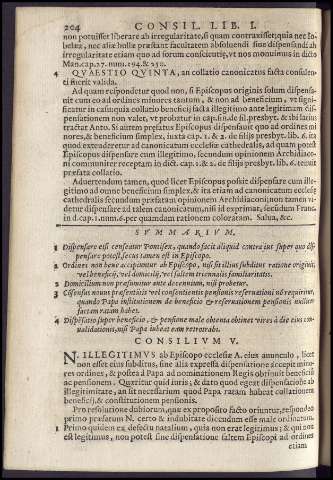 204 CONSIL. LIB. I.
non potuisset liberare ab irregularitate, si quam contraxisset; quia nec In-
belæa, nec aliæ bullæ præstant facultatem absoluendi siue dispensandi ab
irregularitate etiam quo ad forum conscientiæ, vt nos monuimus in dicto
Man. cap. 27. num. 194. & 250.
4 QVAESTIO QVINTA, an collatio canonicatus facta consulen-
ti fuerit valida.
Ad quam respondetur quod non, si Episcopus originis solum dispensa-
uit cum eo ad ordines minores tantum, & non ad beneficium, vt signi-
ficatur in casu; quia collatio beneficij facta illegitimo ante legitimam dis-
pensationem non valet, vt probatur in cap. fin. de fil. presbyt. & tibi latius
tractat Anto. Si autem præfatus Episcopus dispensauit quo ad ordines mi
nores, & beneficium simplex, iuxta cap. 1. & 2. de filijs presbyt. lib. 6. ita
quod extenderetur ad canonicatum ecclesiæ cathedralis, ad quam potest
Episcopus dispensare cum illegitimo, secundum opinionem Archidiaco-
ni communiter receptam in dict. cap. 1. & 2. de filijs presbyt. lib. 6. tenuit
præfata collatio.
Aduertendum tamen, quod licet Episcopus possit dispensare cum ille-
gitimo ad omne beneficium simplex, & ita etiam ad canonicatum ecclesiæ
cathedralis secundum præfatam opinionem Archidiaconi; non tamen vi-
detur dispensare ad talem canonicatum, nisi id exprimat, secundum Franc.
in d. cap. 1. num. 6. per quamdam rationem coloratam. Salua, &c.
SVMMARIVM.
1 Dispensare est censetur Pontifex, quando facit aliquid contra ius super quo dis-
pensare potest. secus tamen est in Episcopo.
2 Ordines non bene accipiuntur ab Episcopo, nisi sit illius subditus ratione originis,
vel beneficij, vel domicilij, vel saltem triennalis familiaritatis.
3 Domicilium non præsumitur ante decennium, nisi probetur.
Consensus nouus præsentis vel consentientis pensionis reseruationi nō requiritur,
quando Papa institutionem de beneficio & reseruationem pensionis nullam
factam ratam habet.
4 Dispēsatio super beneficio, & pensione male obtenta obtinet vires à die eius con-
ualidationis, nisi Papa iubeat eam retrotrahi.
CONSILIVM V.
N. ILLEGITIMVS ab Episcopo ecclesiæ A. eius auunculo, licet
non esset eius subditus, sine alia expressa dispensatione accepit mino
res ordines, & postea à Papa ad nominationem Regis obtinuit beneficiū
ac pensionem. Quæritur quid iuris; & dato quod egeat dispensatione ab
illegimitate, an sit necessarium quod Papa ratam habeat collationem
beneficij, & constitutionem pensionis.
Pro resolutione dubiorum, quæ ex proposito facto oriuntur, respondeo
primo præfatum N. certo & indubitate dicendum esse male ordinatum.
1 Primo quidem ex defectu natalium, quia non erat legitimus; & qui non
est legitimus, non potest sine dispensatione saltem Episcopi ad ordines
etiam